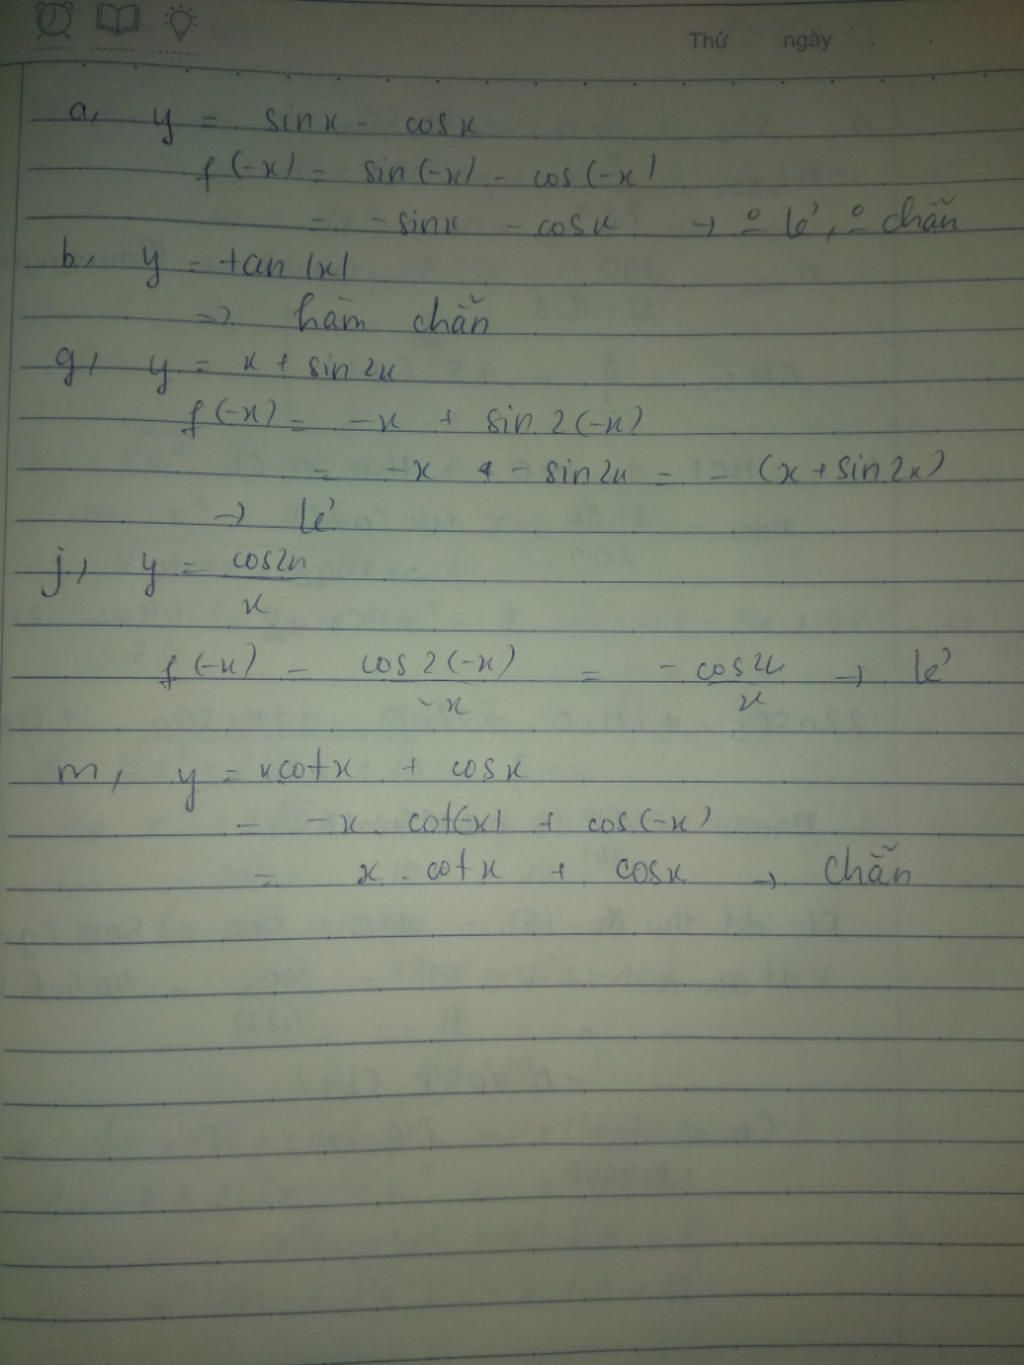 Thứ ngày
a, y = sinx - cosx
f(-x) = sin(-x) - cos(-x)
= -sinx - cosx → o lẻ, o chẵn
b, y = tan|x|
=> hàm chẵn
g, y = x + sin2x
f(-x) = -x + sin2(-x)
= -x - sin2x = -(x + sin2x)
→ lẻ
j, y = cos2x / x
f(-x) = cos2(-x) / -x = - cos2x / x → lẻ
m, y = xcotx + cosx
= -x. cot(-x) + cos(-x)
= x. cotx + cosx → chẵn